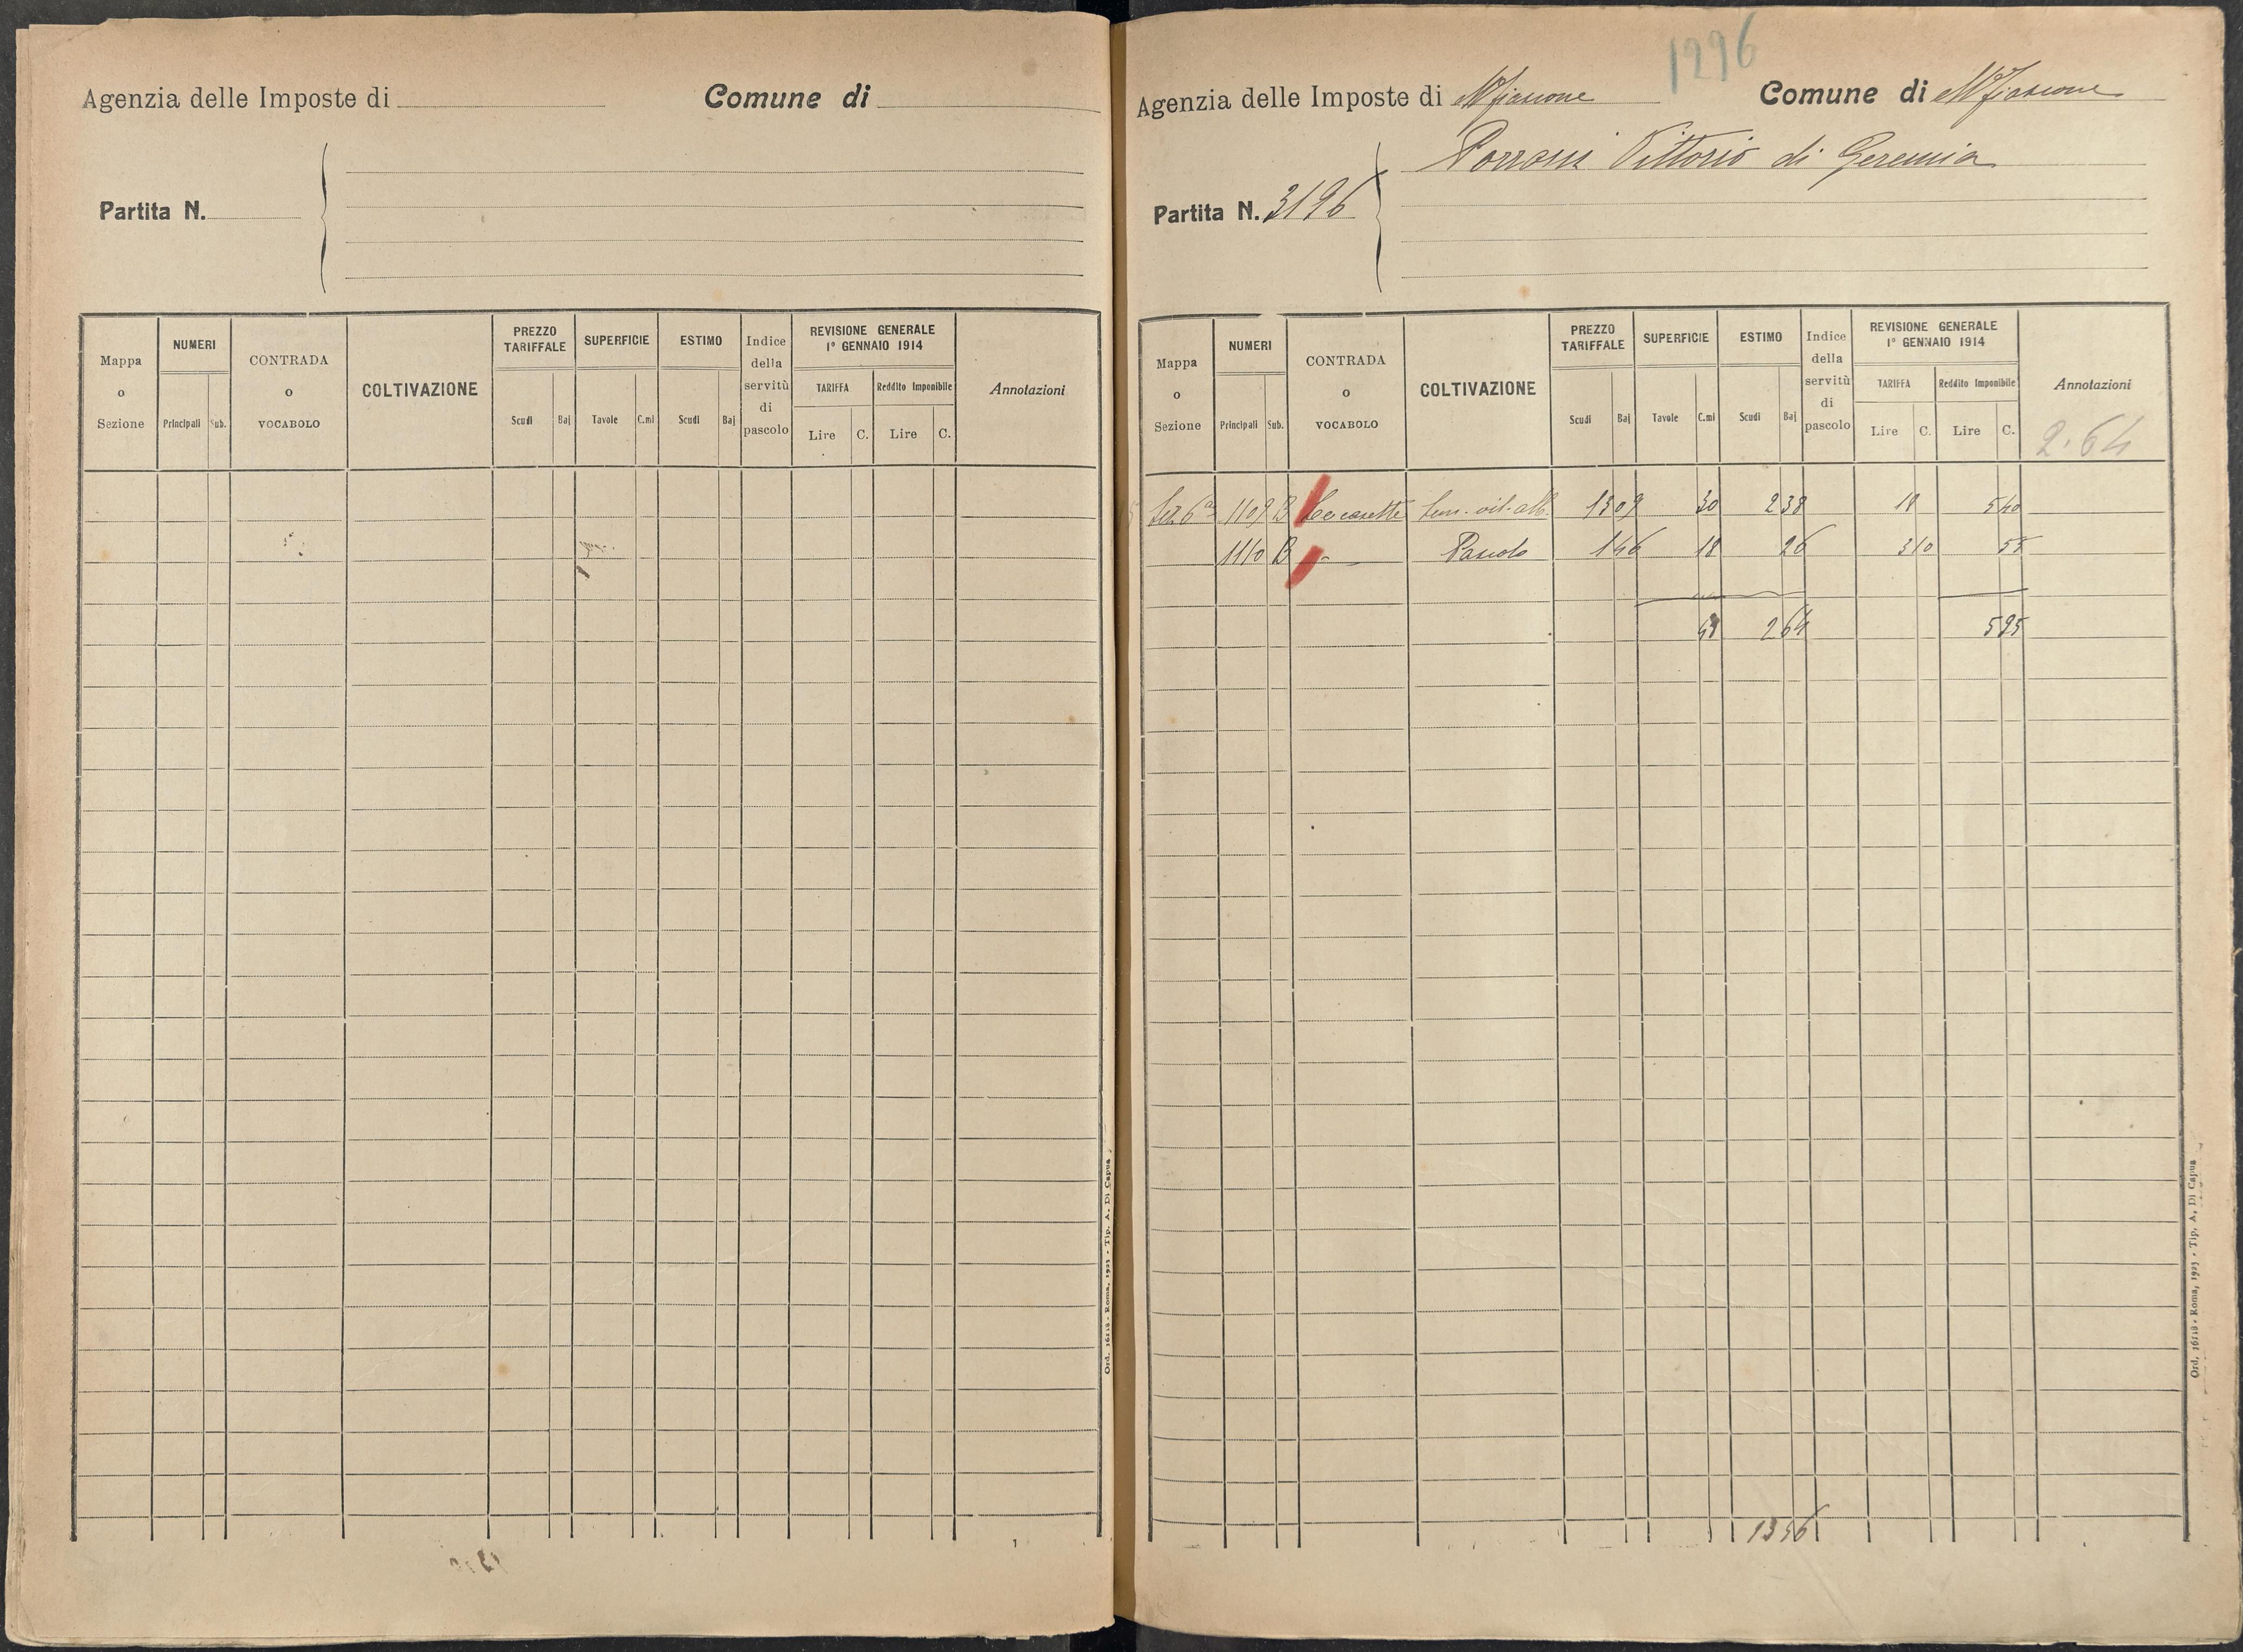 Agenzia delle Imposte di
Comune di
Partita N.
Mappa o Sezione
NUMERI
Principali Sub.
CONTRADA o VOCABOLO
COLTIVAZIONE
PREZZO TARIFFALE
Scudi Baj
SUPERFICIE
Tavole C.mi
ESTIMO
Scudi Baj
Indice della servitù di pascolo
REVISIONE GENERALE
1° GENNAIO 1914
TARIFFA Reddito Imponibile
Lire C. Lire C.
Annotazioni
Ord. 16118 - Roma, 1923 - Tip. A. Di Capua
1296
Agenzia delle Imposte di Mfiascone
Comune di Mfiascone
Porroni Vittorio di Geremia
Partita N. 3196
Mappa o Sezione
NUMERI
Principali Sub.
CONTRADA o VOCABOLO
COLTIVAZIONE
PREZZO TARIFFALE
Scudi Baj
SUPERFICIE
Tavole C.mi
ESTIMO
Scudi Baj
Indice della servitù di pascolo
REVISIONE GENERALE
1° GENNAIO 1914
TARIFFA Reddito Imponibile
Lire C. Lire C.
Annotazioni
2.64
Sez. 6ª 1109 B 1309 30 238 18 540
1110 B Pascolo 146 18 26 310 55
48 264 595
1356
Ord. 16118 - Roma, 1923 - Tip. A. Di Capua